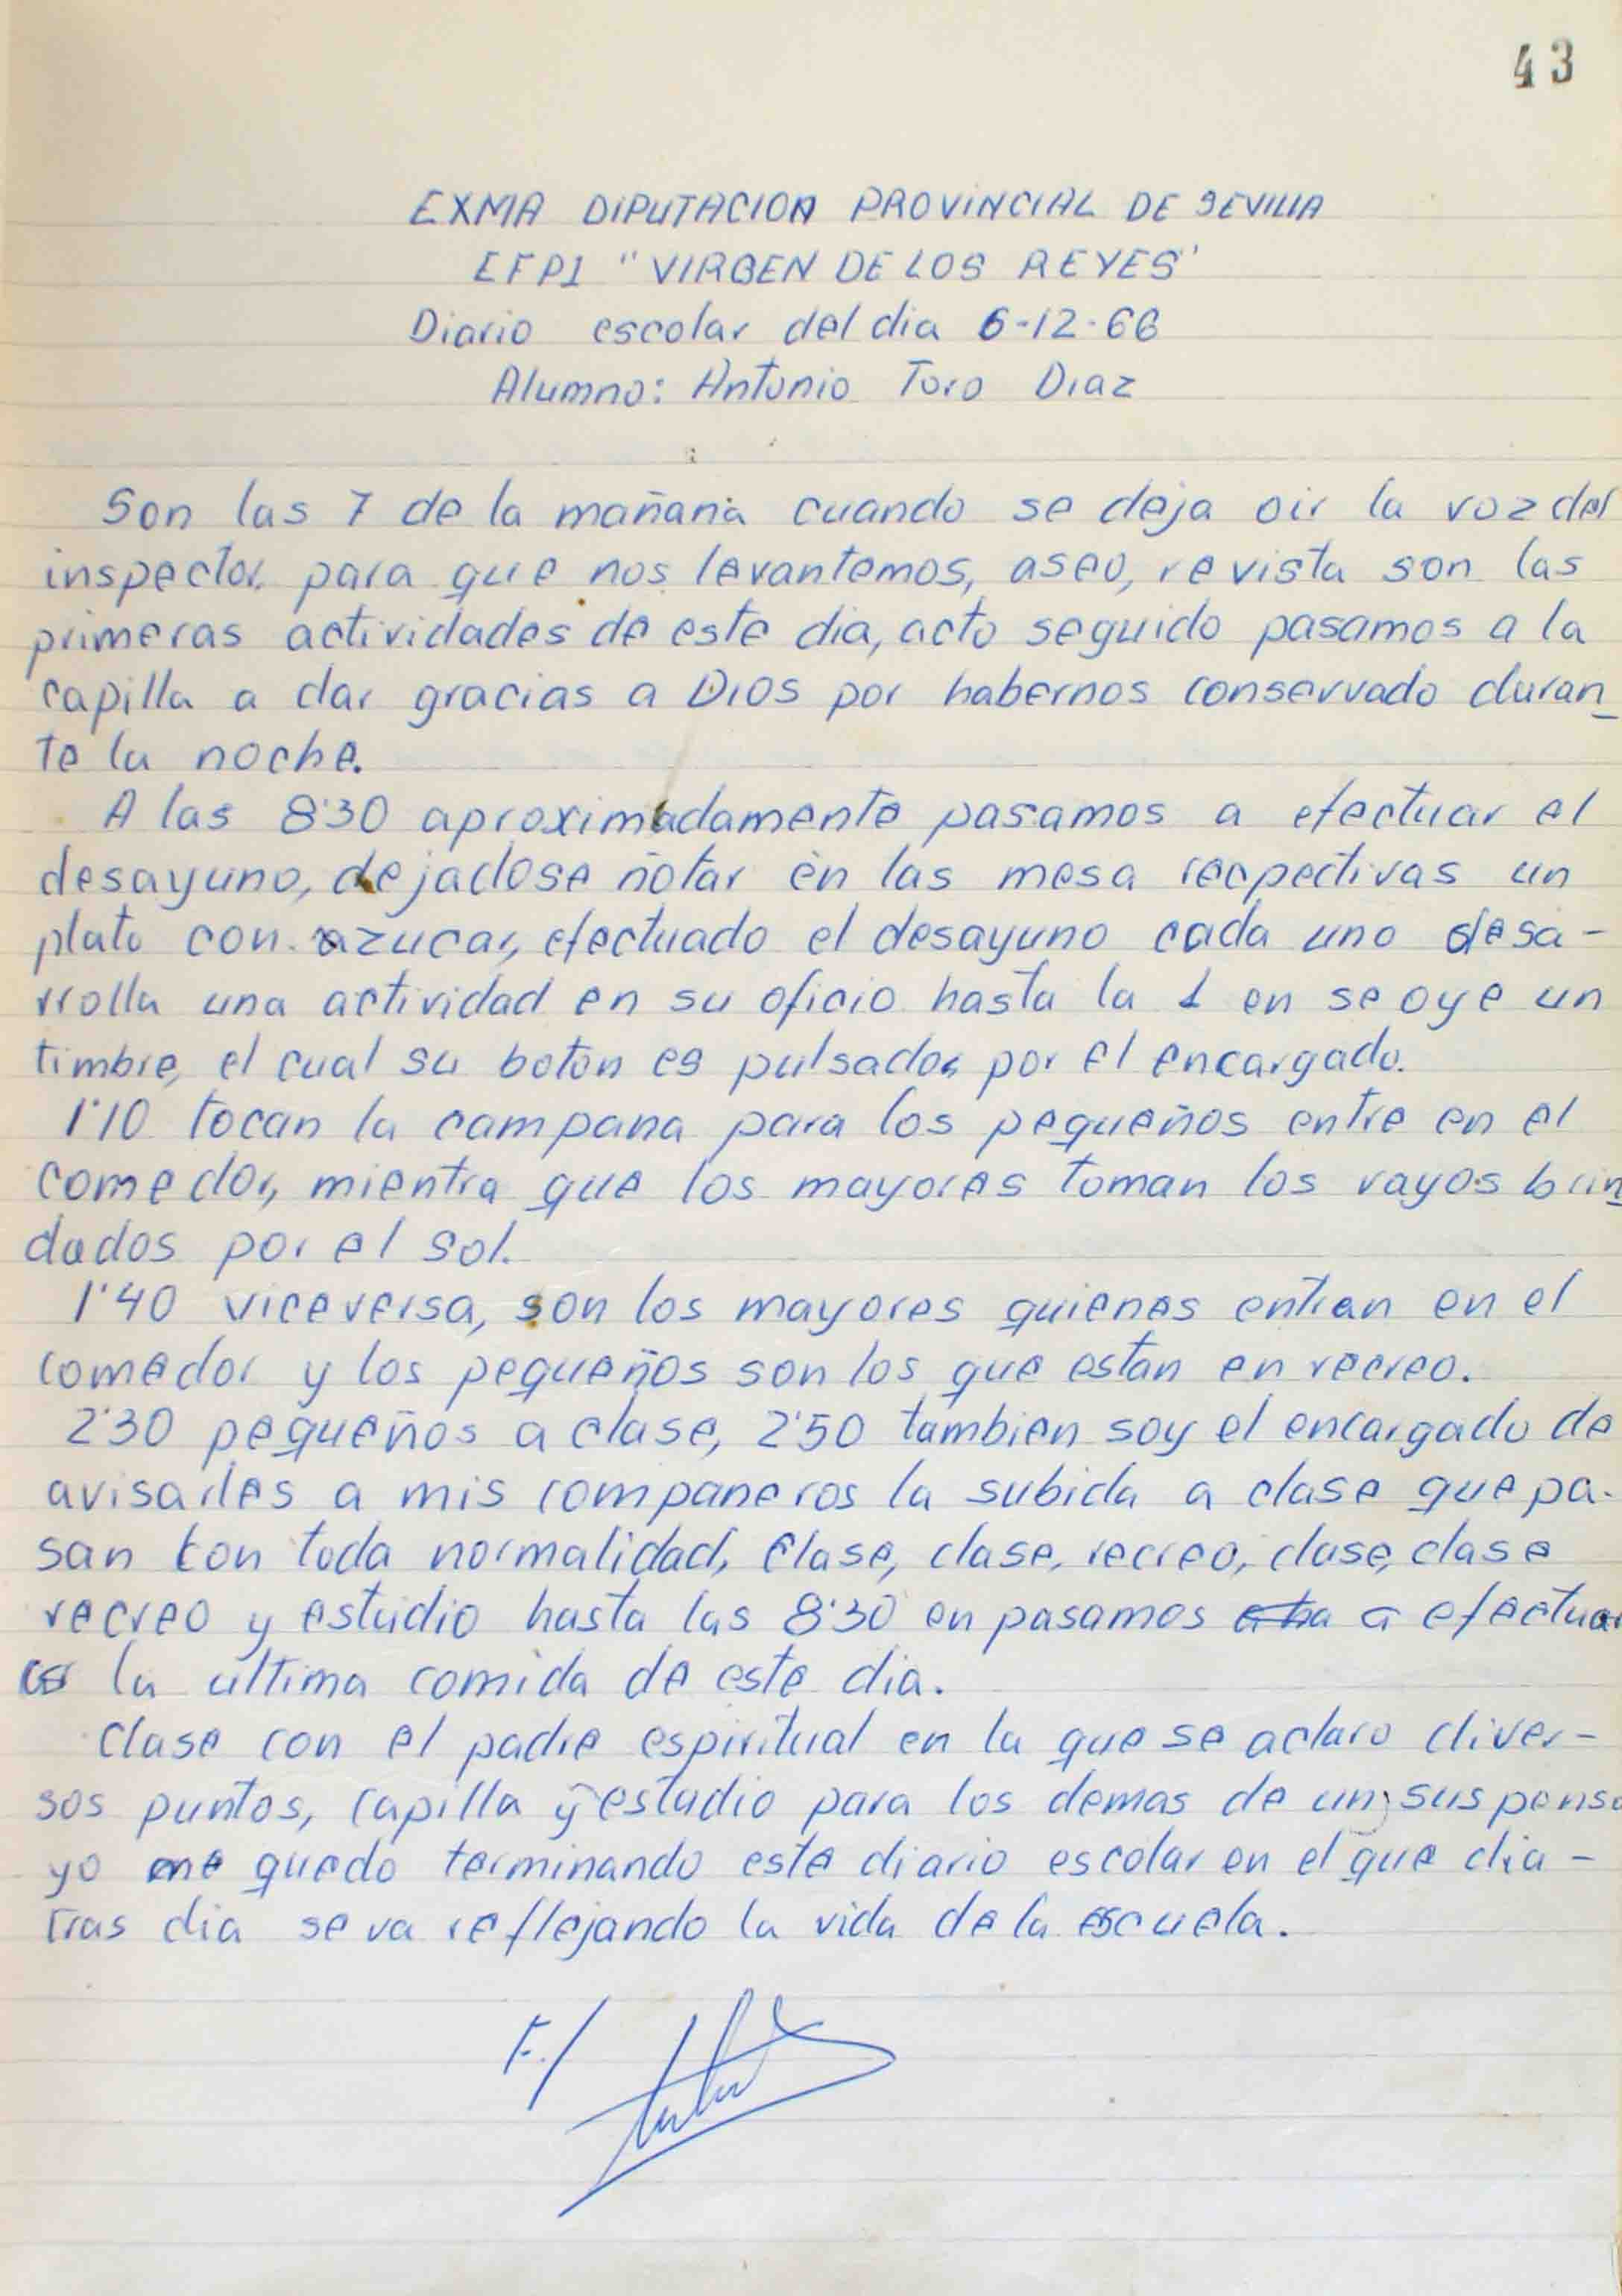 43
EXMA DIPUTACION PROVINCIAL DE SEVILLA
EFPI "VIRGEN DE LOS REYES"
Diario escolar del dia 6-12-66
Alumno: Antonio Toro Diaz
Son las 7 de la mañana cuando se deja oir la voz del
inspector para que nos levantemos, aseo, revista son las
primeras actividades de este dia, acto seguido pasamos a la
capilla a dar gracias a Dios por habernos conservado duran_
te la noche.
A las 8'30 aproximadamente pasamos a efectuar el
desayuno, dejadose notar en las mesa respectivas un
plato con azucar, efectuado el desayuno cada uno desa-
rrolla una actividad en su oficio hasta la 1 en se oye un
timbre, el cual su boton es pulsado por el encargado.
1'10 tocan la campana para los pequeños entre en el
comedor, mientra que los mayores toman los rayos brin_
dados por el sol.
1'40 viceversa, son los mayores quienes entran en el
comedor y los pequeños son los que estan en recreo.
2'30 pequeños a clase, 2'50 tambien soy el encargado de
avisarles a mis companeros la subida a clase que pa-
san con toda normalidad, clase, clase, recreo, clase, clase
recreo y estudio hasta las 8'30 en pasamos a efectuar
la ultima comida de este dia.
Clase con el padre espiritual en la que se aclaro diver-
sos puntos, capilla y estudio para los demas de un suspenso
yo me quedo terminando este diario escolar en el que dia-
tras dia se va reflejando la vida de la escuela.
F./